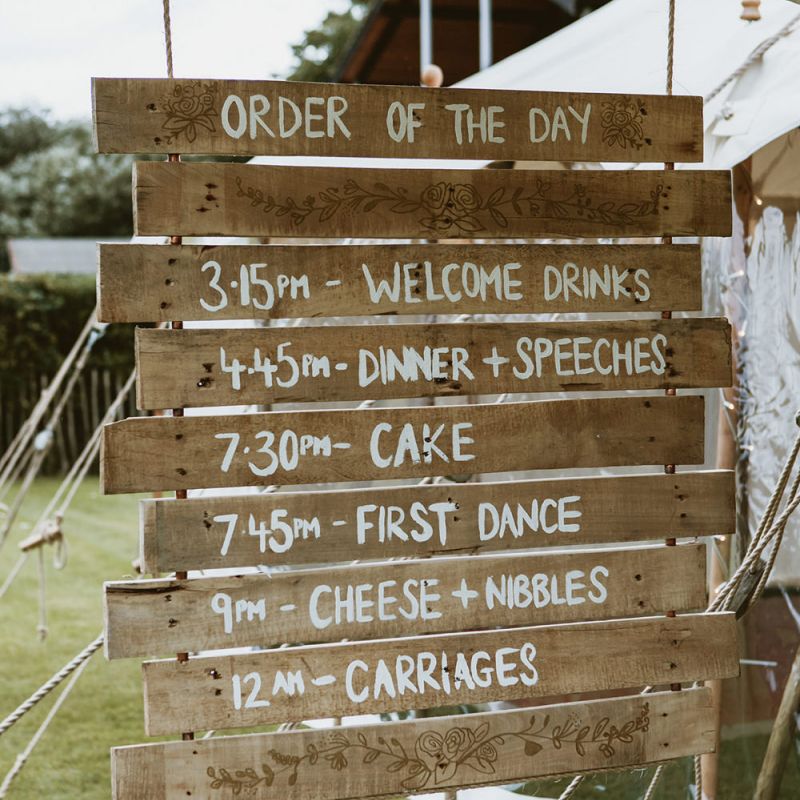 ORDER OF THE DAY
3.15PM - WELCOME DRINKS
4.45PM - DINNER + SPEECHES
7.30PM - CAKE
7.45PM - FIRST DANCE
9PM - CHEESE + NIBBLES
12 AM - CARRIAGES